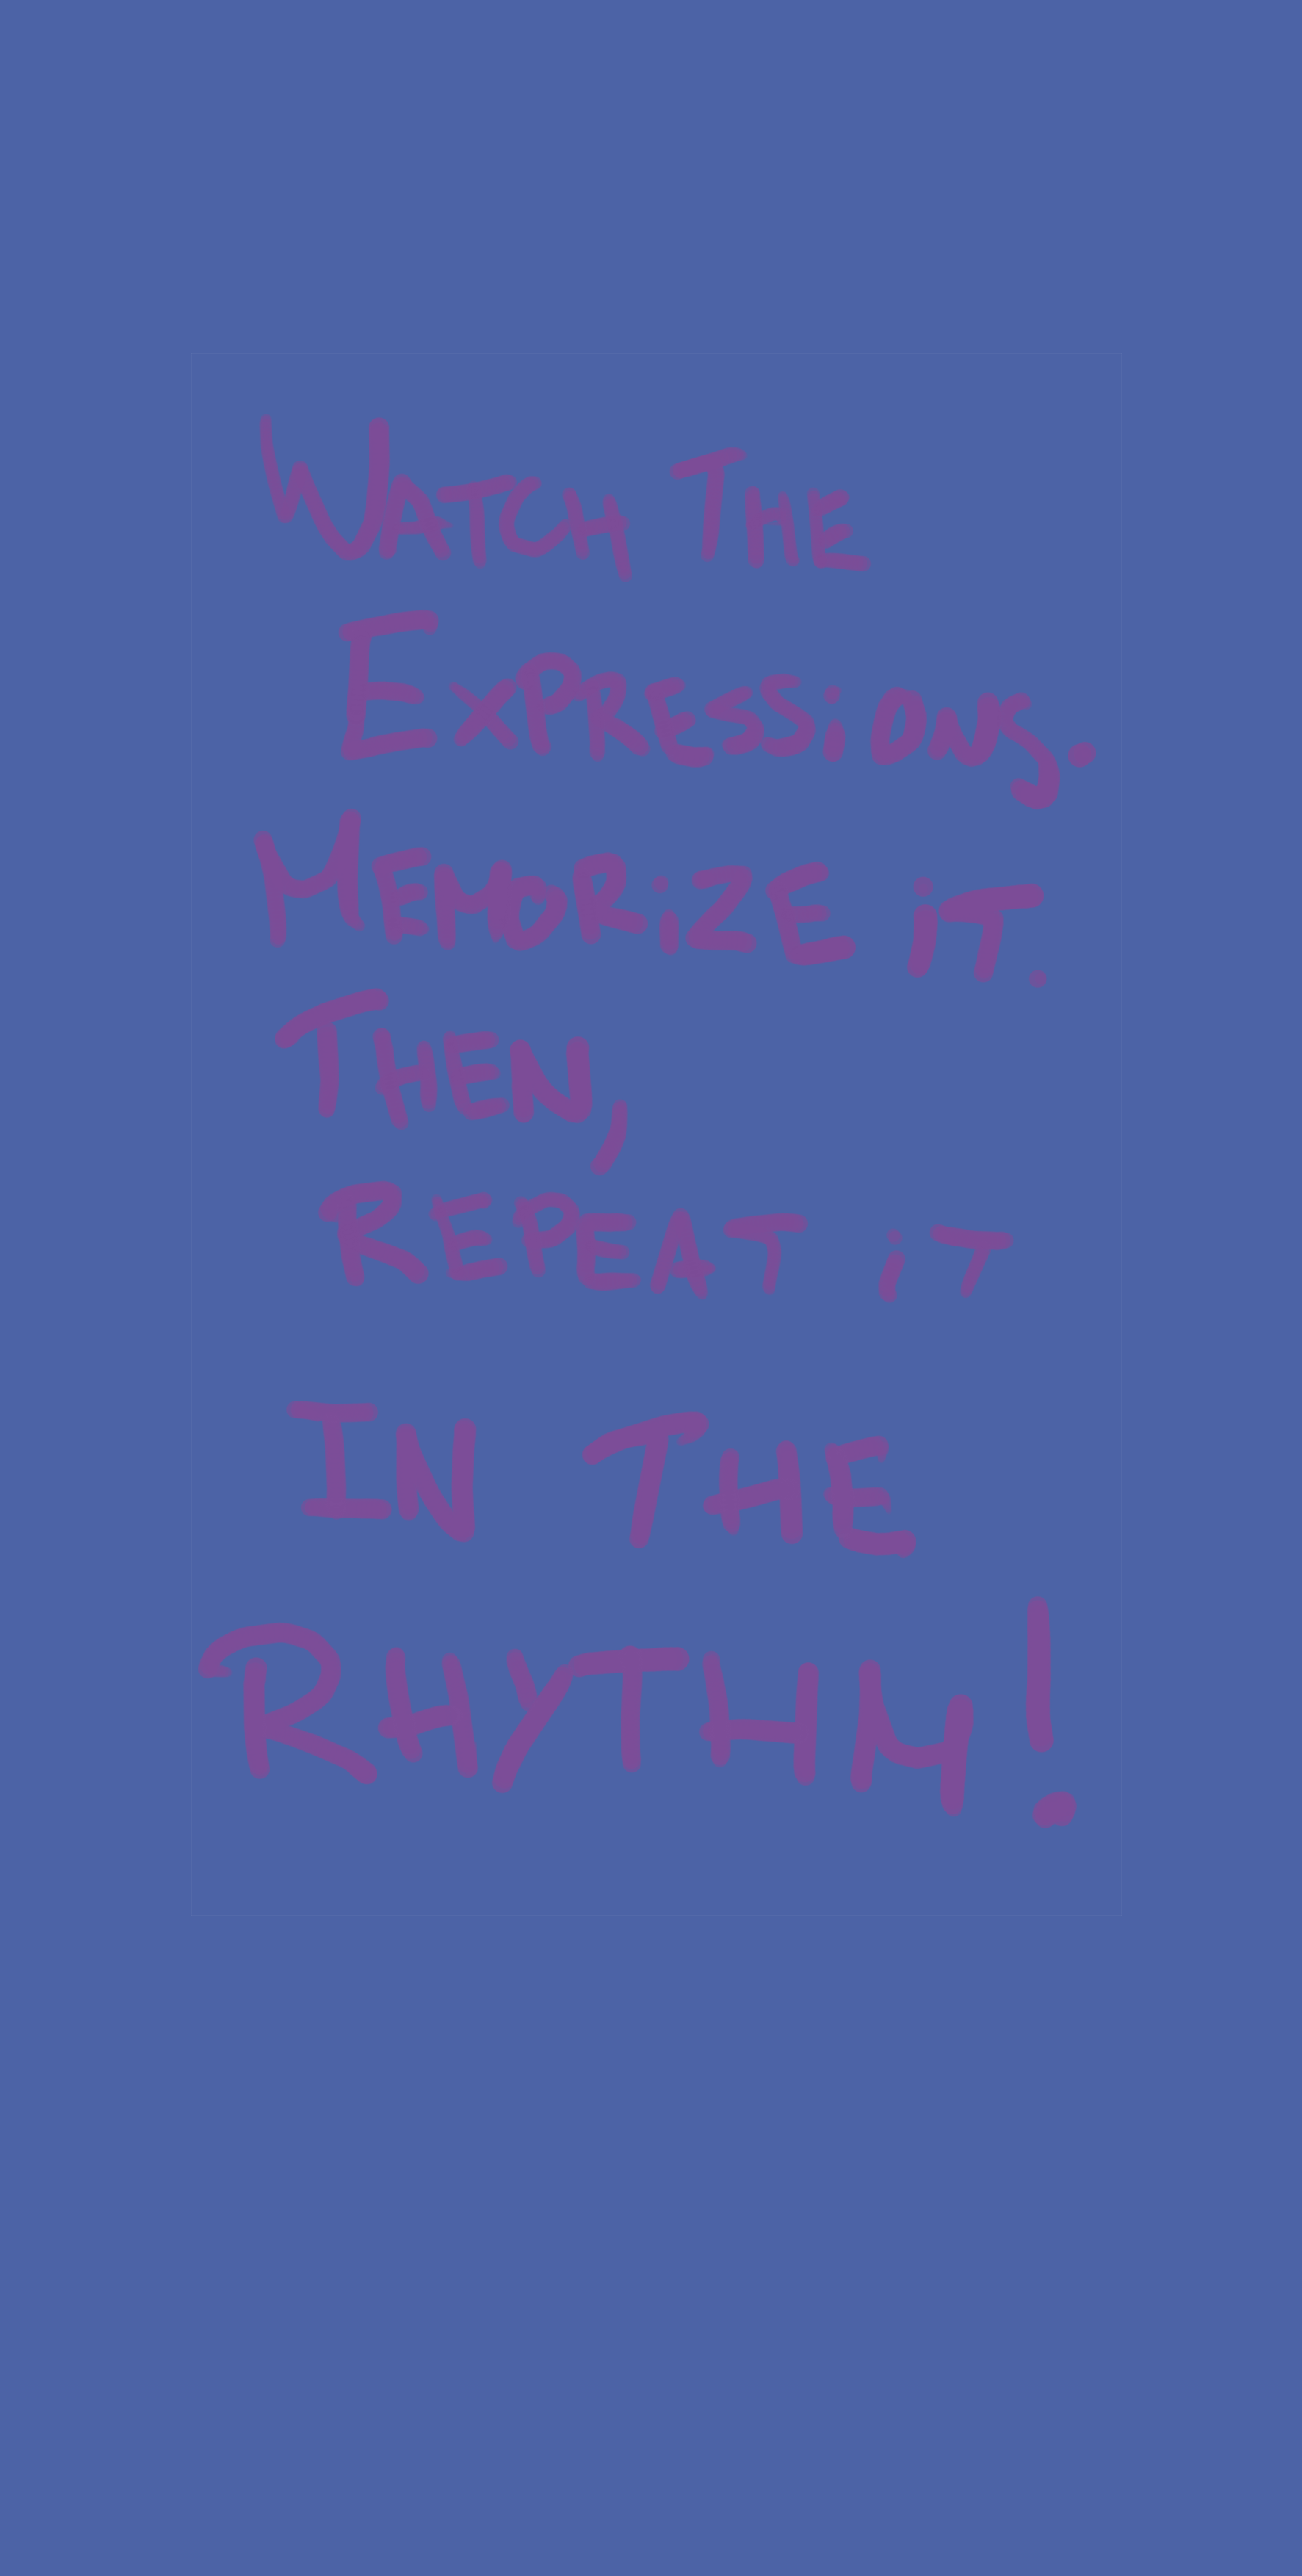 WATCH THE
EXPRESSiONS.
MEMORiZE iT.
THEN,
REPEAT iT
IN THE
RHYTHM!